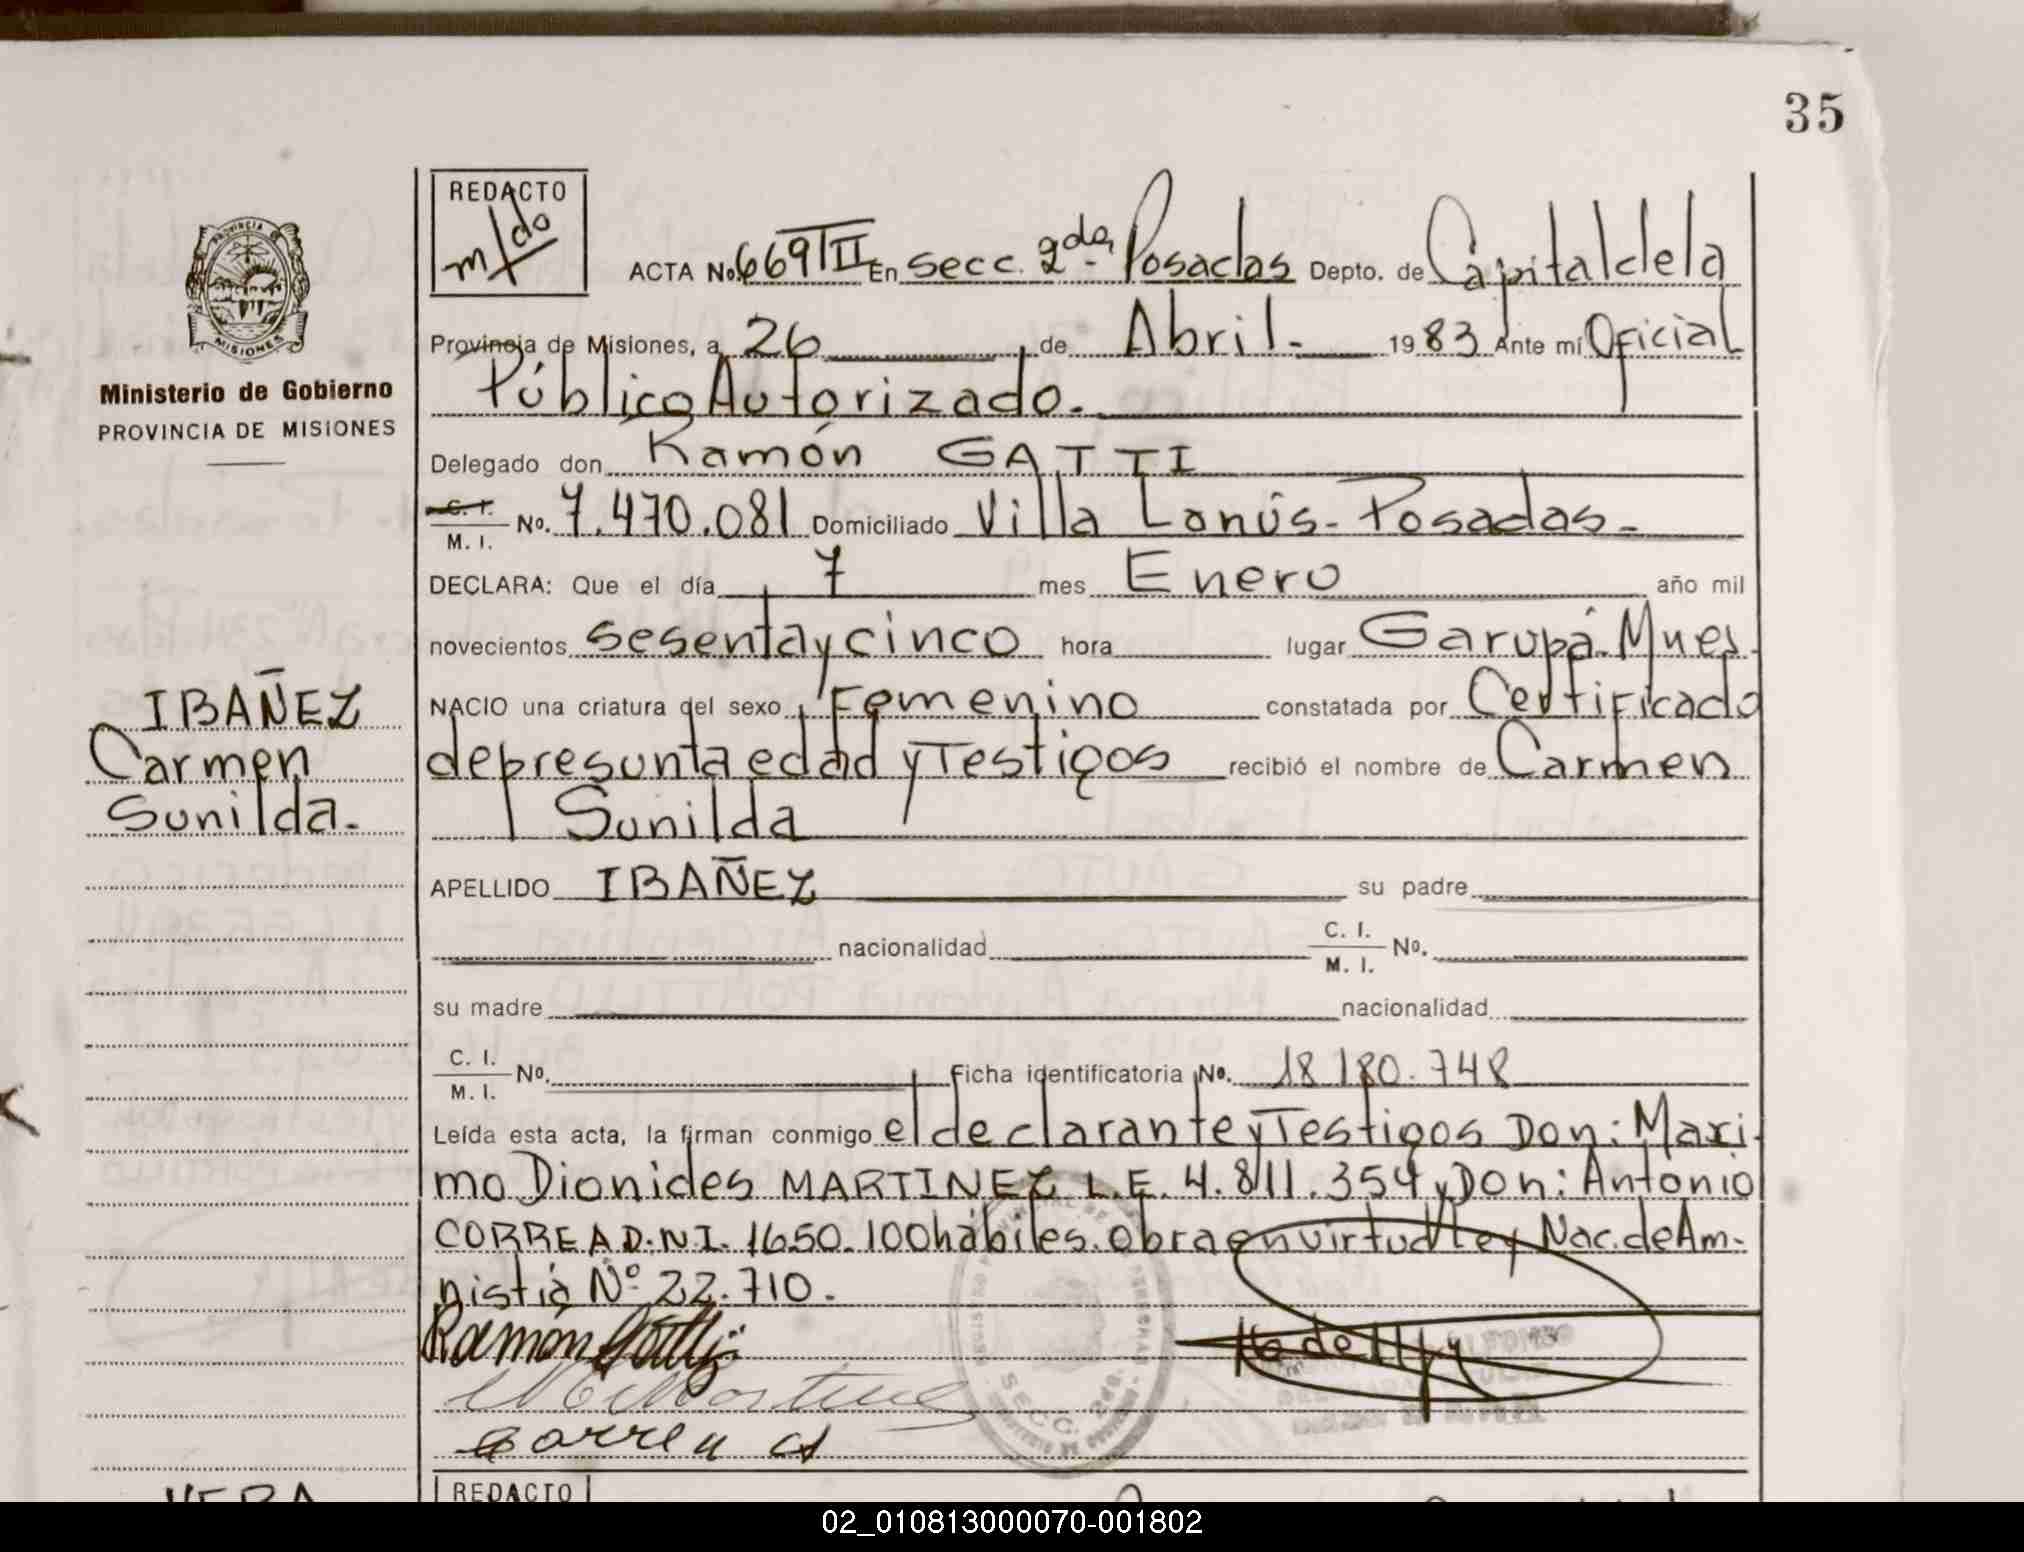 35
REDACTO
m/do
PROVINCIA DE
MISIONES
Ministerio de Gobierno
PROVINCIA DE MISIONES
ACTA No. 669 TII En secc. 2da. Posadas Depto. de Capital de la
Provincia de Misiones, a 26 de Abril. 1983 Ante mí Oficial
Público Autorizado.
Delegado don Ramón GATTI
C. I. M. I. No. 7.470.081 Domiciliado Villa Lanús- Posadas-
DECLARA: Que el día 7 mes Enero año mil
novecientos sesenta y cinco hora lugar Garupá. Mnes.
IBAÑEZ
Carmen
Sunilda.
NACIO una criatura del sexo Femenino constatada por Certificado
de presunta edad y Testigos recibió el nombre de Carmen
Sunilda
APELLIDO IBAÑEZ su padre
nacionalidad C. I. M. I. No.
su madre nacionalidad
C. I. M. I. No. Ficha identificatoria No. 18.180.748
Leída esta acta, la firman conmigo el declarante y Testigos Don: Maxi-
mo Dionides MARTINEZ L.E. 4.811.354 y Don: Antonio
CORREA D.N.I. 1650.100 hábiles. Obra en virtud Ley Nac. de Am-
nistia Nº 22.710.
Ramón Gatti
Correa A
SECC. 2da.
VERA
REDACTO
02_010813000070-001802